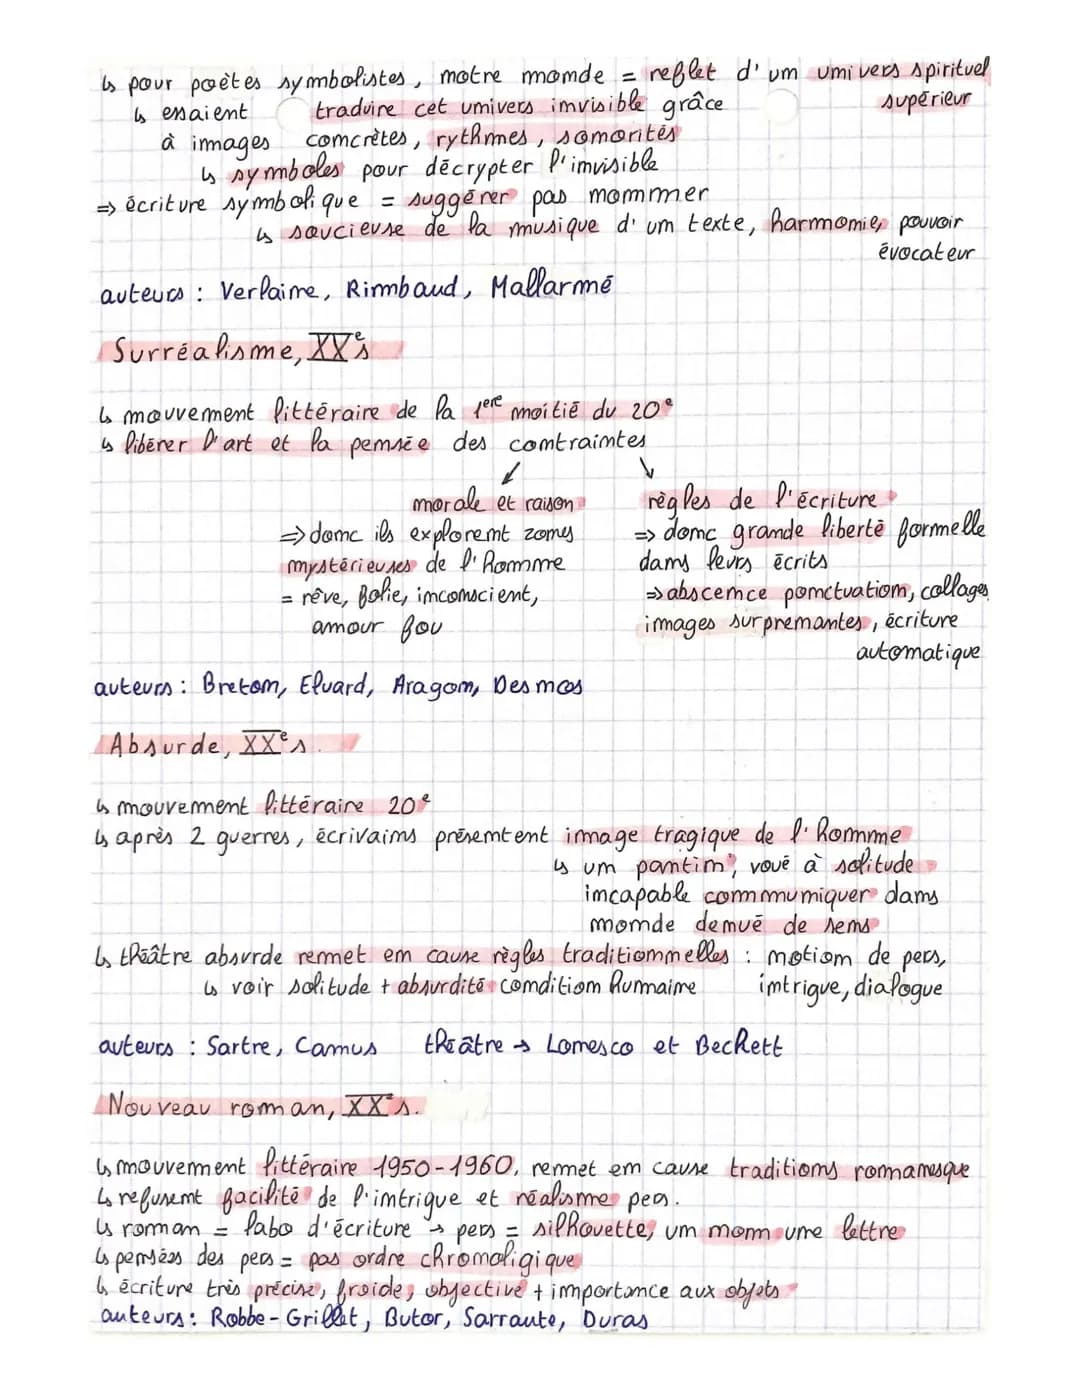 ↳ pour poètes symbolistes, notre monde = reflet d'un univers spirituel supérieur
↳ essaient traduire cet univers invisible grâce
à images concrètes, rythmes, sonorités
↳ symboles pour décrypter l'invisible
⇒ écriture symbolique = suggérer pas nommer
↳ soucieuse de la musique d'un texte, harmonie, pouvoir évocateur
auteurs : Verlaine, Rimbaud, Mallarmé
Surréalisme, XXe s
↳ mouvement littéraire de la 1ere moitié du 20e
↳ libérer l'art et la pensée des contraintes
↙ ↘
morale et raison
⇒ donc ils explorent zones
mystérieuses de l'Homme
= rêve, folie, inconscient,
amour fou
règles de l'écriture
⇒ donc grande liberté formelle
dans leurs écrits
⇒ abscence ponctuation, collages,
images surprenantes, écriture
automatique
auteurs : Breton, Eluard, Aragon, Desnos
Absurde, XXe s.
↳ mouvement littéraire 20e
↳ après 2 guerres, écrivains présentent image tragique de l'Homme
↳ un "pantin", voué à solitude
incapable communiquer dans
monde dénué de sens
↳ théâtre absurde remet en cause règles traditionnelles : notion de pers,
intrigue, dialogue
↳ voir solitude + absurdité condition humaine
auteurs : Sartre, Camus théâtre → Ionesco et Beckett
Nouveau roman, XXe s.
↳ mouvement littéraire 1950-1960, remet en cause traditions romanesque
↳ refusent facilité de l'intrigue et réalisme pers.
↳ roman = labo d'écriture → pers = silhouette, un nom une lettre
↳ pensées des pers = pas ordre chronoligique
↳ écriture très précise, froide, objective + importance aux objets
auteurs : Robbe-Grillet, Butor, Sarraute, Duras